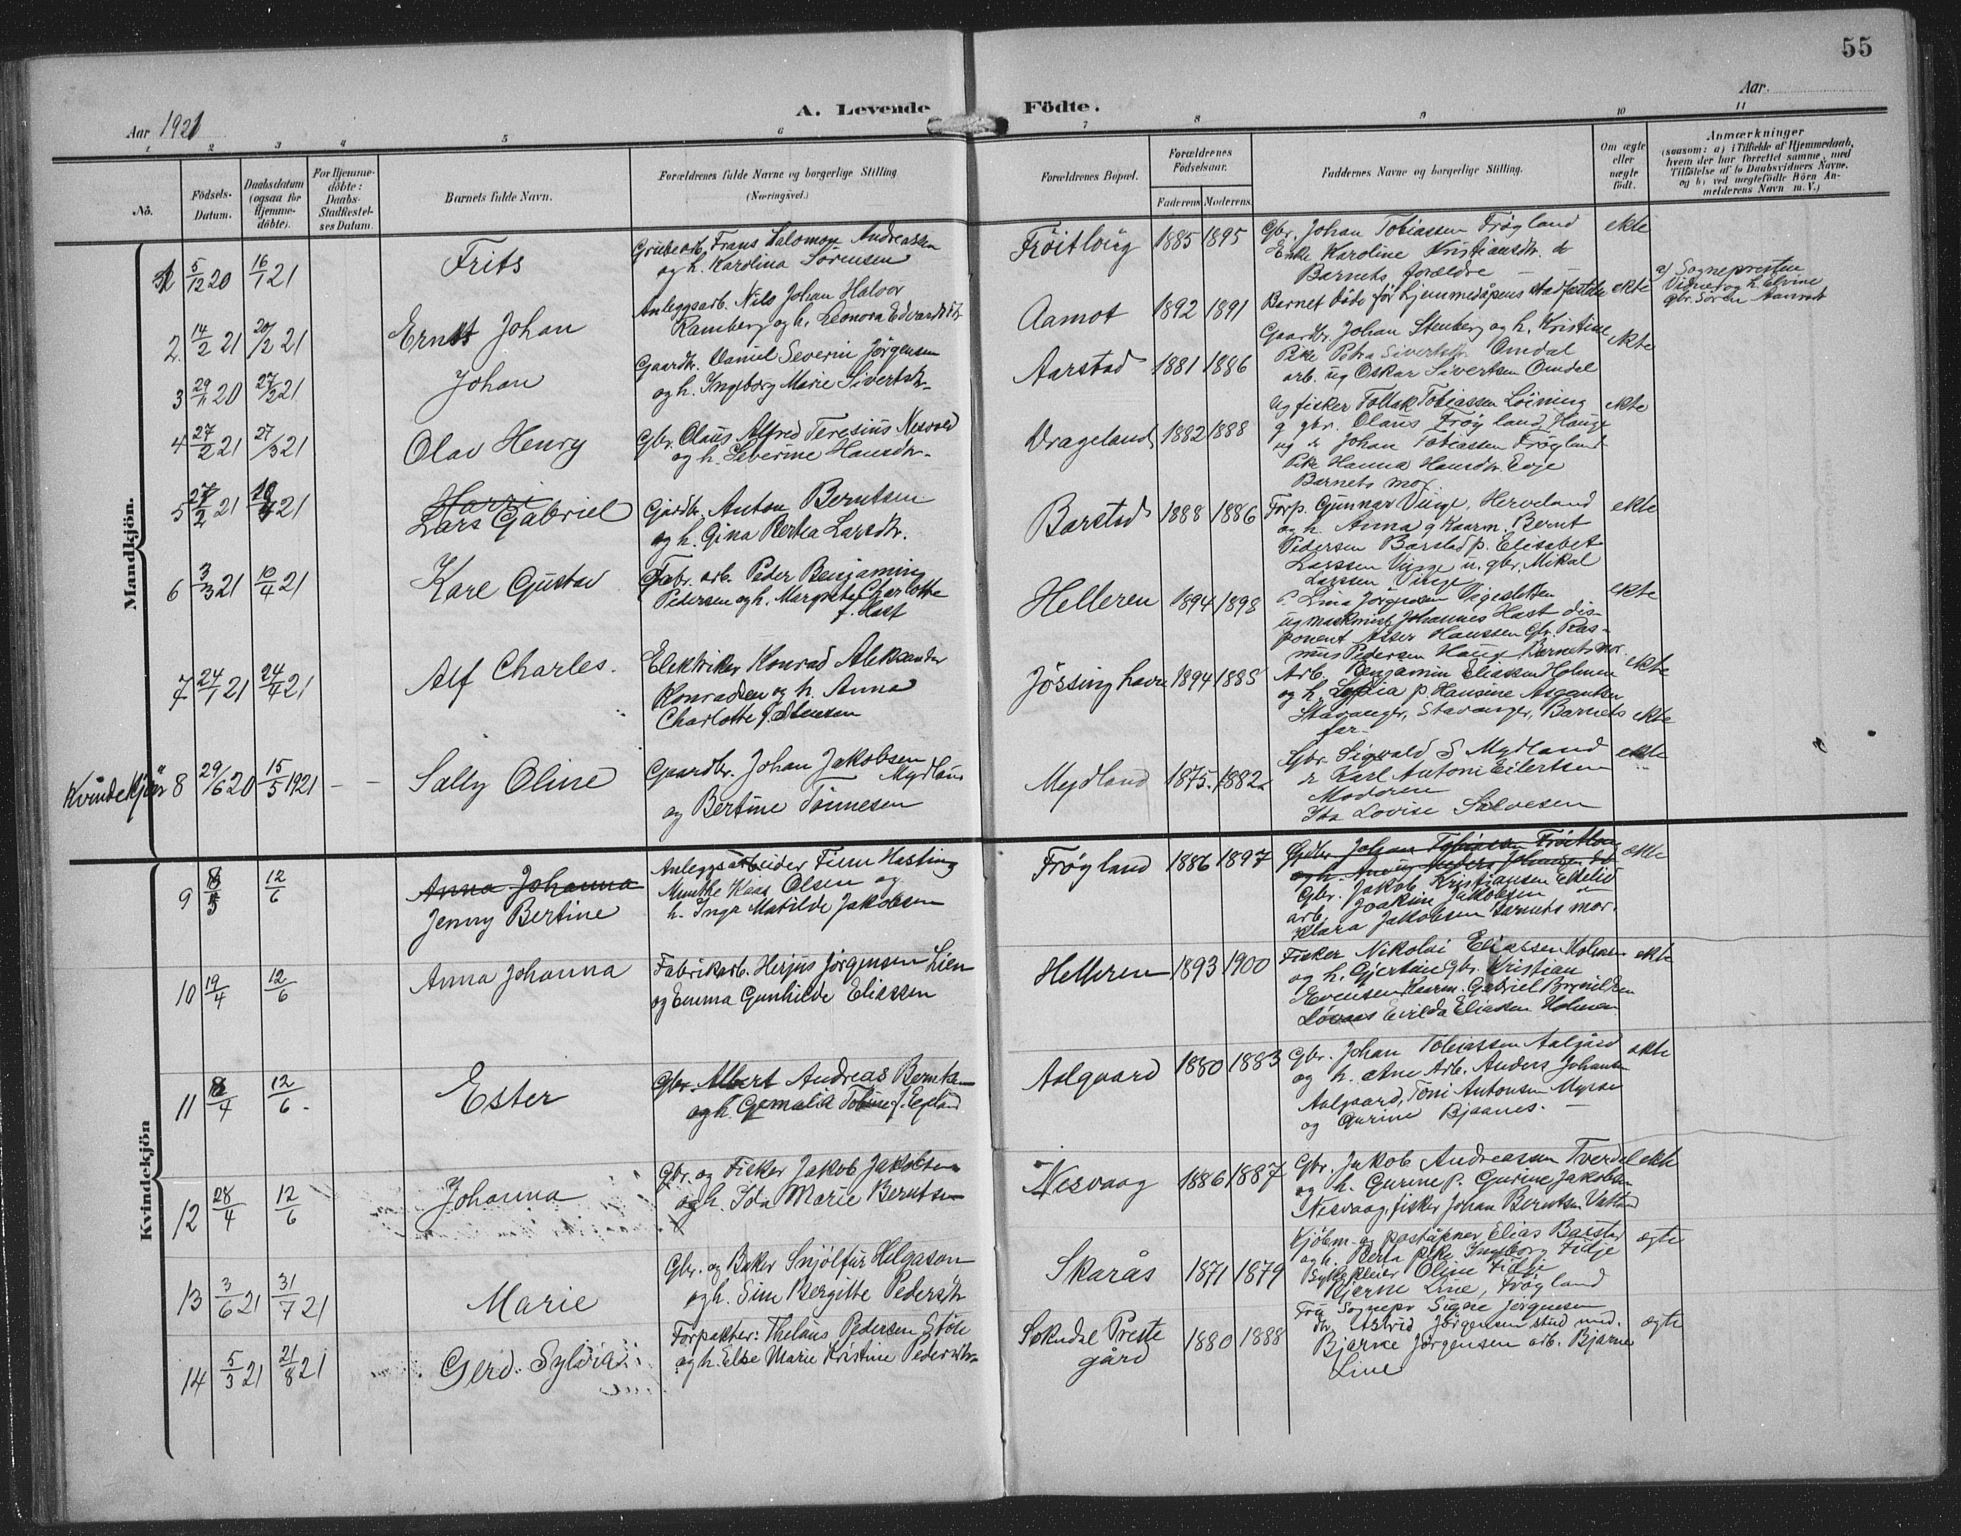 55
Aar 1921
A. Levende Födte.
Aar.
1 2 3 4 5 6 7 8 9 10 11
No.
Födsels-Datum.
Daabsdatum (ogsaa for Hjemme-döbte).
For Hjemme-döbte: Daabs-Stadfæstel-ses Datum.
Barnets fulde Navn.
Forældrenes fulde Navne og borgerlige Stilling (Næringsvei.)
Forældrenes Bopæl.
Forældrenes Födselsaar.
Faderens Moderens
Faddernes Navne og borgerlige Stilling.
Om ægte eller uægte födt.
Anmærkninger
(saasom: a) i Tilfælde af Hjemmedaab, hvem der har forrettet samme, med Tilföielse af to Daabsvidners Navne. og b) ved uægtefödte Börn An-melderens Navn m. V.)
Mandkjön.
1 5/12 20 16/1 21 Frits
Grubearb. Frans Salomon Andreassen
og h. Karolina Sørensen
1885 1895
Gbr. Johan Tobiassen Frøgland
Enke Karoline Kristiansdtr. de
Barnets forældre
ekte
2 14/2 21 20/2 21 Ernst Johan
Anleggsarb. Nils Johan Halvor
Ramberg og h. Leonora Edvardsdtr
Aamot 1892 1891
Barnet døde før hjemmedåpens stadfestelse
ekte
a) Sognepresten
3 29/11 20 27/3 21 Johan
Gaardbr. Daniel Severin Jørgensen
og h. Ingeborg Marie Sivertsdtr.
Aarstad 1881 1886
Gaardbr. Johan Stenberg og h. Kristine
Pike Petra Sivertsdtr. Omdal
arb. ug Oskar Sivertsen Omdal
ekte
4 27/2 21 27/3 21 Olav Henry
Gbr. Olaus Alfred Teresius Nesvold
og h. Severine Hansdtr.
Drageland 1882 1888
ug fisker Tollak Tobiassen Løining
g gbr. Olaus Frøyland, Hauge
ug d Johan Tobiassen Frøgland
Pike Hanna Hansdtr. Eeje
Barnets mor.
ekte
5 27/2 21 21 Harri
Lars Gabriel
Gardbr. Anton Berntsen
og h. Gina Bertea Larsdtr.
Barstad 1888 1886
Forp. Gunnar Vinje, Herveland
og h. Anna g Kaarm. Bernt
Pedersen Barstad p. Elisabet
Larssen Vinje u. gbr. Mikal
Larssen Vinje
ekte
6 3/3 21 10/4 21 Kare Gustav
Fabr. arb. Peder Benjaming
Pedersen og h. Margrete Charlotte
f. Hast
Helleren 1894 1898
P. Lina Jørgensen Vigesletten
ug maskinist Johannes Hast dis-
ponent Asser Hanssen Gbr. Ras-
mus Pedersen Hauge Barnets mor.
ekte
7 24/1 21 24/4 21 Alf Charles.
Elektriker Konrad Aleksander
Konradsen og h. Anna
Charlotte
Jøssinghavn 1894 1885
Arb. Benjamin Eliassen Holmen
og h. Lydia p. Hansine Asgautsen
Stavanger, Stavanger, Barnets
far.
ekte
ekte
Kvindekjön 8 29/6 20 15/5 1921 Sally Oline
Gaardbr. Johan Jakobsen
Mydland
og Bertine Tønnesen
Mydland 1875. 1882
Gbr. Sigvald S Mydland
d Karl Antoni Eilertsen
Moderen
Ida Lovise Salvesen
ekte
Kvindekjön
9 12/6 Anna Johanna
Jenny Bertine
Anleggsarbeider Finn Hasting
Munthe Kaas Olsen og
h. Inga Matilde Jakobsen
Frøgland 1886 1897
Gbr. Johan Tobiassen Frøitlog
Gbr. Jakob Kristiansen Eikelid
arb. Joakim Jakobsen do
Klara Jakobsen barnets mor.
ekte
10 19/4 12/6 Anna Johanna
Fabrikarb. Herjus Jørgensen Lien
og Emma Gunhilde Eliassen
Helleren 1893 1900
Fisker Nikolai Eliassen Holmen
og h. Gjertine Gbr. Kristian
Evensen Kaarm. Gabriel Brynildsen
Løvaas Evilda Eliassen Holmen
ekte
11 8/4 12/6 Ester
Gbr. Albert Andreas Berntsen
og h. Gemalia Tobine f. Egeland
Aalgaard 1880 1883
Gbr. Johan Tobiassen Aalgård
og h. Ane Arb. Anders Johansen
Aalgaard, Toni Antonsen Myrse
og Gurine Bjaanes.
ekte
12 28/4 12/6 Johanna
Gbr. og Fisker Jakob Jakobsen
og h. Ida Marie Berntsen
Nesvaag 1886 1887
Gbr. Jakob Andreassen Tverdal
og h. Gurine p. Gurine Jakobsen
Nesvaag, fisker Johan Berntsen
ekte
13 3/6 21 31/7 21 Marie
Gbr. og Baker Snjólfur Helgason
og h. Sina Bergitte Pedersdtr
Skarås 1871 1879
Kjøbm. og poståpner Elias Barstad
og h. Berta pike Ingeborg Fidje
Sykepleier Oline Fidje
Bjerne Line, Frøgland
ægte
14 5/3 21 21/8 21 Gerd. Sylvia
Forpakter: Thelaus Pedersen Støle
og h. Else Marie Kristine Pedersdtr
Sokndal Preste
gård
1880 1888
Fru Sognepr Signe Jørgensen
dr. Astrid Jørgensen stud med.
Bjarne Jørgensen arb. Bjarne
Line
ægte